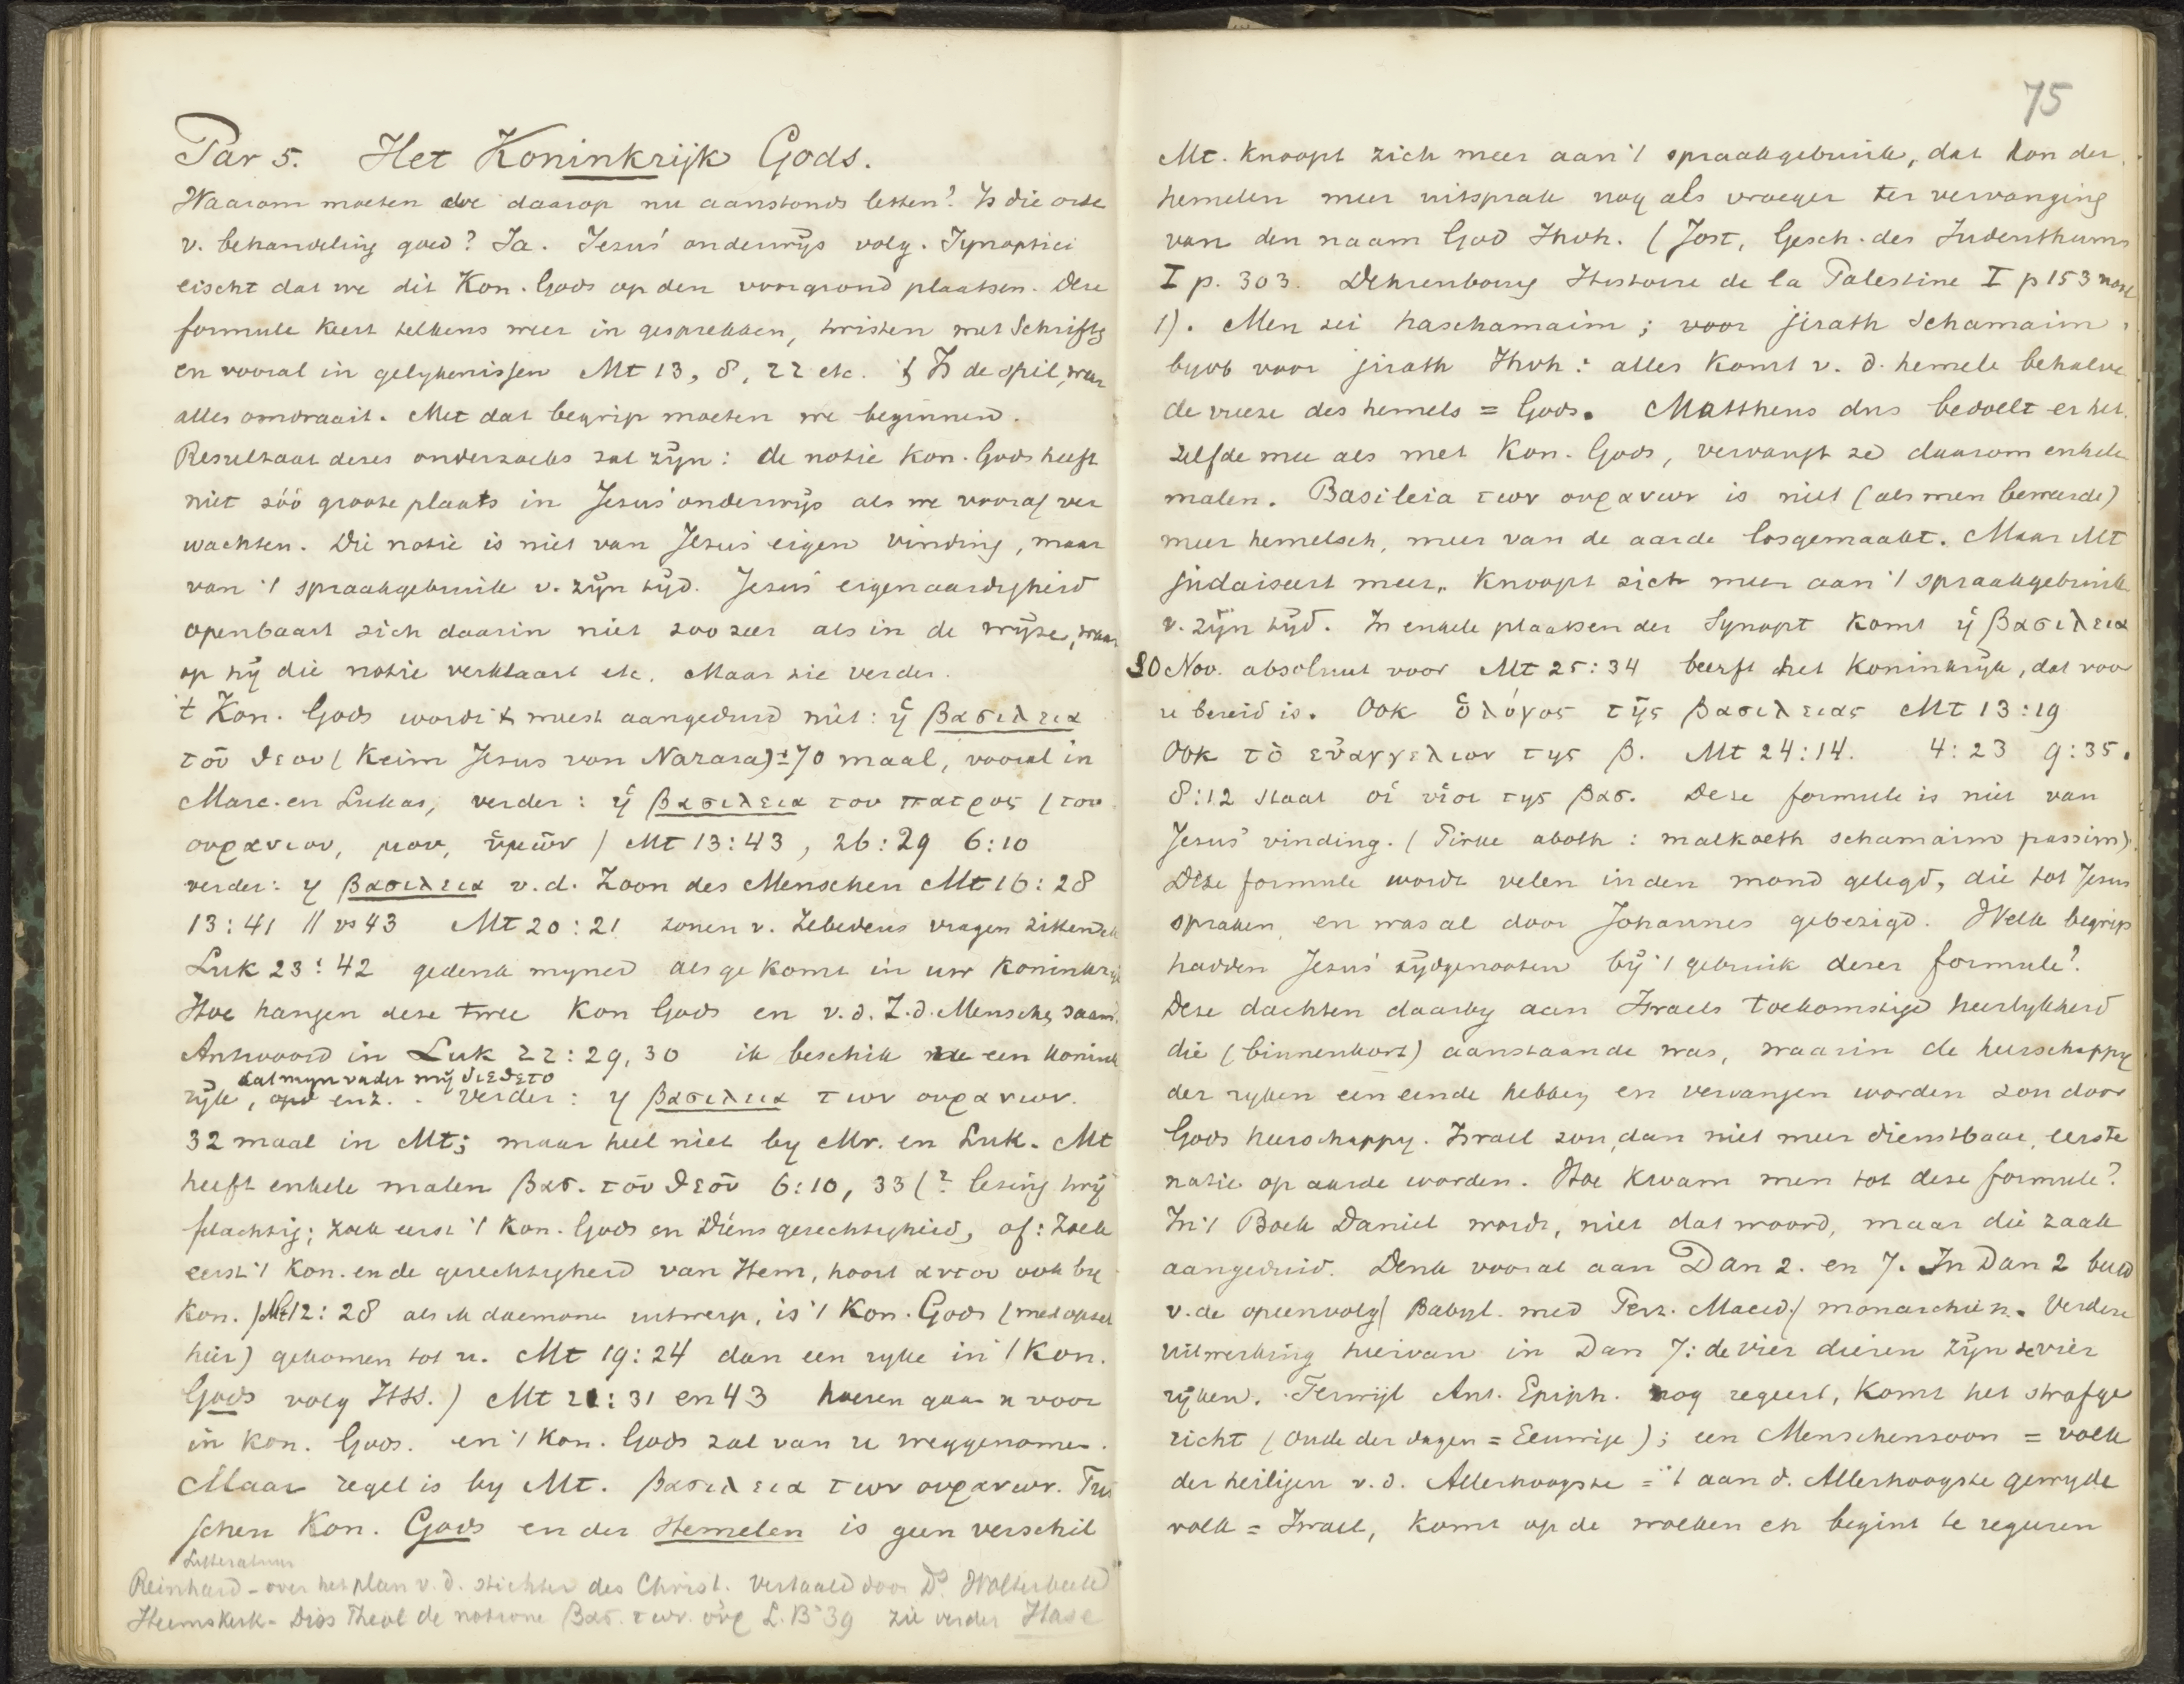 Par 5. Het Koninkrijk Gods.
Waarom moeten we daarop nu aanstonds letten? Is die orde
v. behandeling goed? Ja. Jezus' onderwijs volg. Synoptici
eischt dat we dit Kon. Gods op den voorgrond plaatsen. Deze
formule keert telkens weer in gesprekken, twisten met Schriftg
en vooral in gelykenissen Mt 13, 8, 22 etc. Is de spil, waar
alles omdraait. Met dat begrip moeten we beginnen.
Resultaat dezes onderzoeks zal zijn: de notie Kon. Gods heeft
niet zóó groote plaats in Jezus' onderwijs als we vooraf ver
wachten. Die notie is niet van Jezus' eigen vinding, maar
van 't spraakgebruik v. zijn tijd. Jezus' eigenaardigheid
openbaart zich daarin niet zoo zeer als in de wijze, waar
op hij die notie verklaart etc. Maar zie verder.
't Kon. Gods wordt 't meest aangeduid met: ἡ βασιλεια
τοῦ θεου (Keim Jesus von Nazara) ± 70 maal, vooral in
Marc. en Lukas, verder: ἡ βασιλεια του πατρος (του
ουρανιου, μου, ὑμῶν) Mt 13:43, 26:29 6:10
verder: η βασιλεια v.d. Zoon des Menschen Mt 16:28
13:41 // vs 43 Mt 20:21 zonen v. Zebedeus vragen zitten
Luk 23:42 gedenk mijner als ge komt in uw Koninkrijk
Hoe hangen deze twee Kon Gods en v.d. Z.d. Menschen saam.
Antwoord in Luk 22:29,30 ik beschik u een konink
dat myn vader mij διεθετο
rijk, enz. Verder: η βασιλεια των ουρανων.
32 maal in Mt; maar heel niet by Mr. en Luk. Mt
heeft enkele malen βασ. τοῦ θεοῦ 6:10, 33 (? lezing twij
felachtig; zoek eerst 't Kon. Gods en Diens gerechtigheid, of: zoek
eerst 't Kon. en de gerechtigheid van Hem, hoort αυτου ook by
Kon.) Mt 12:28 als ik daemonen uitwerp, is 't Kon. Gods (met opzet
hier) gekomen tot u. Mt 19:24 dan een rijke in 't Kon.
Gods volg HSS.) Mt 21:31 en 43 hoeren gaan u voor
in Kon. Gods. en 't Kon. Gods zal van u weggenomen.
Maar regel is by Mt. βασιλεια των ουρανων. Tus
schen Kon. Gods en der Hemelen is geen verschil
Litteratuur
Reinhard - over het plan v.d. stichter des Christ. vertaald door Ds. Wolterbeek
Heemskerk - Diss Theol de notione βασ. των. οὐρ L.B '39 zie verder Hase
75
Mt. Knoopt zich meer aan 't spraakgebruik, dat Kon der
hemelen meer uitsprak nog als vroeger ter vervanging
van den naam God Jhvh. (Jost, Gesch. des Judenthums
I p. 303. Dehrenbourg Histoire de la Palestine I p 153 note
1). Men zei haschamaim; voor jirath Schamaim
byvb voor jirath Jhvh: alles komt v. d. hemele behalve
de vreeze des hemels = Gods. Mattheus dus bedoelt er het
zelfde mee als met Kon. Gods, vervangt ze daarom enkele
malen. Basileia των ουρανων is niet (als men beweerde)
meer hemelsch, meer van de aarde losgemaakt. Maar Mt
judaiseert meer, knoopt zich meer aan 't spraakgebruik
v. zijn tijd. In enkele plaatsen der Synopt komt ἡ βασιλεια
30 Nov. absoluut voor Mt 25:34 beerft het Koninkrijk, dat voor
u bereid is. Ook ὁ λόγος τῆς βασιλειας Mt 13:19
Ook τὸ εὐαγγελιον της β. Mt 24:14. 4:23 9:35.
8:12 staat οἱ υἱοι της βασ. Deze formule is niet van
Jezus' vinding. (Pirke aboth: malkoeth schamaim passim).
Deze formule wordt velen in den mond gelegd, die tot Jezus
spraken en was al door Johannes gebezigd. Welk begrip
hadden Jezus' tijdgenooten bij 't gebruik dezer formule?
Deze dachten daarby aan Israels toekomstige heerlykheid
die (binnenkort) aanstaande was, waarin de heerschappy
der ryken een einde hebben en vervangen worden zou door
Gods heerschappy. Israel zou dan niet meer dienstbaar, eerste
natie op aarde worden. Hoe kwam men tot deze formule?
In 't Boek Daniel wordt, niet dat woord, maar die zaak
aangeduid. Denk vooral aan Dan 2. en 7. In Dan 2 beeld
v. de opeenvolg( Babyl. med Perz. Maced.) monarchien. Verdere
uitwerking hiervan in Dan 7: de vier dieren zijn de vier
rijken. Terwijl Ant. Epiph. nog regeert, komt het strafge
richt (oude der dagen = Eeuwige); een Menschenzoon = volk
der heiligen v.d. Allerhoogste = 't aan d. Allerhoogste gewyde
volk = Israel, komt op de wolken en begint te regeeren